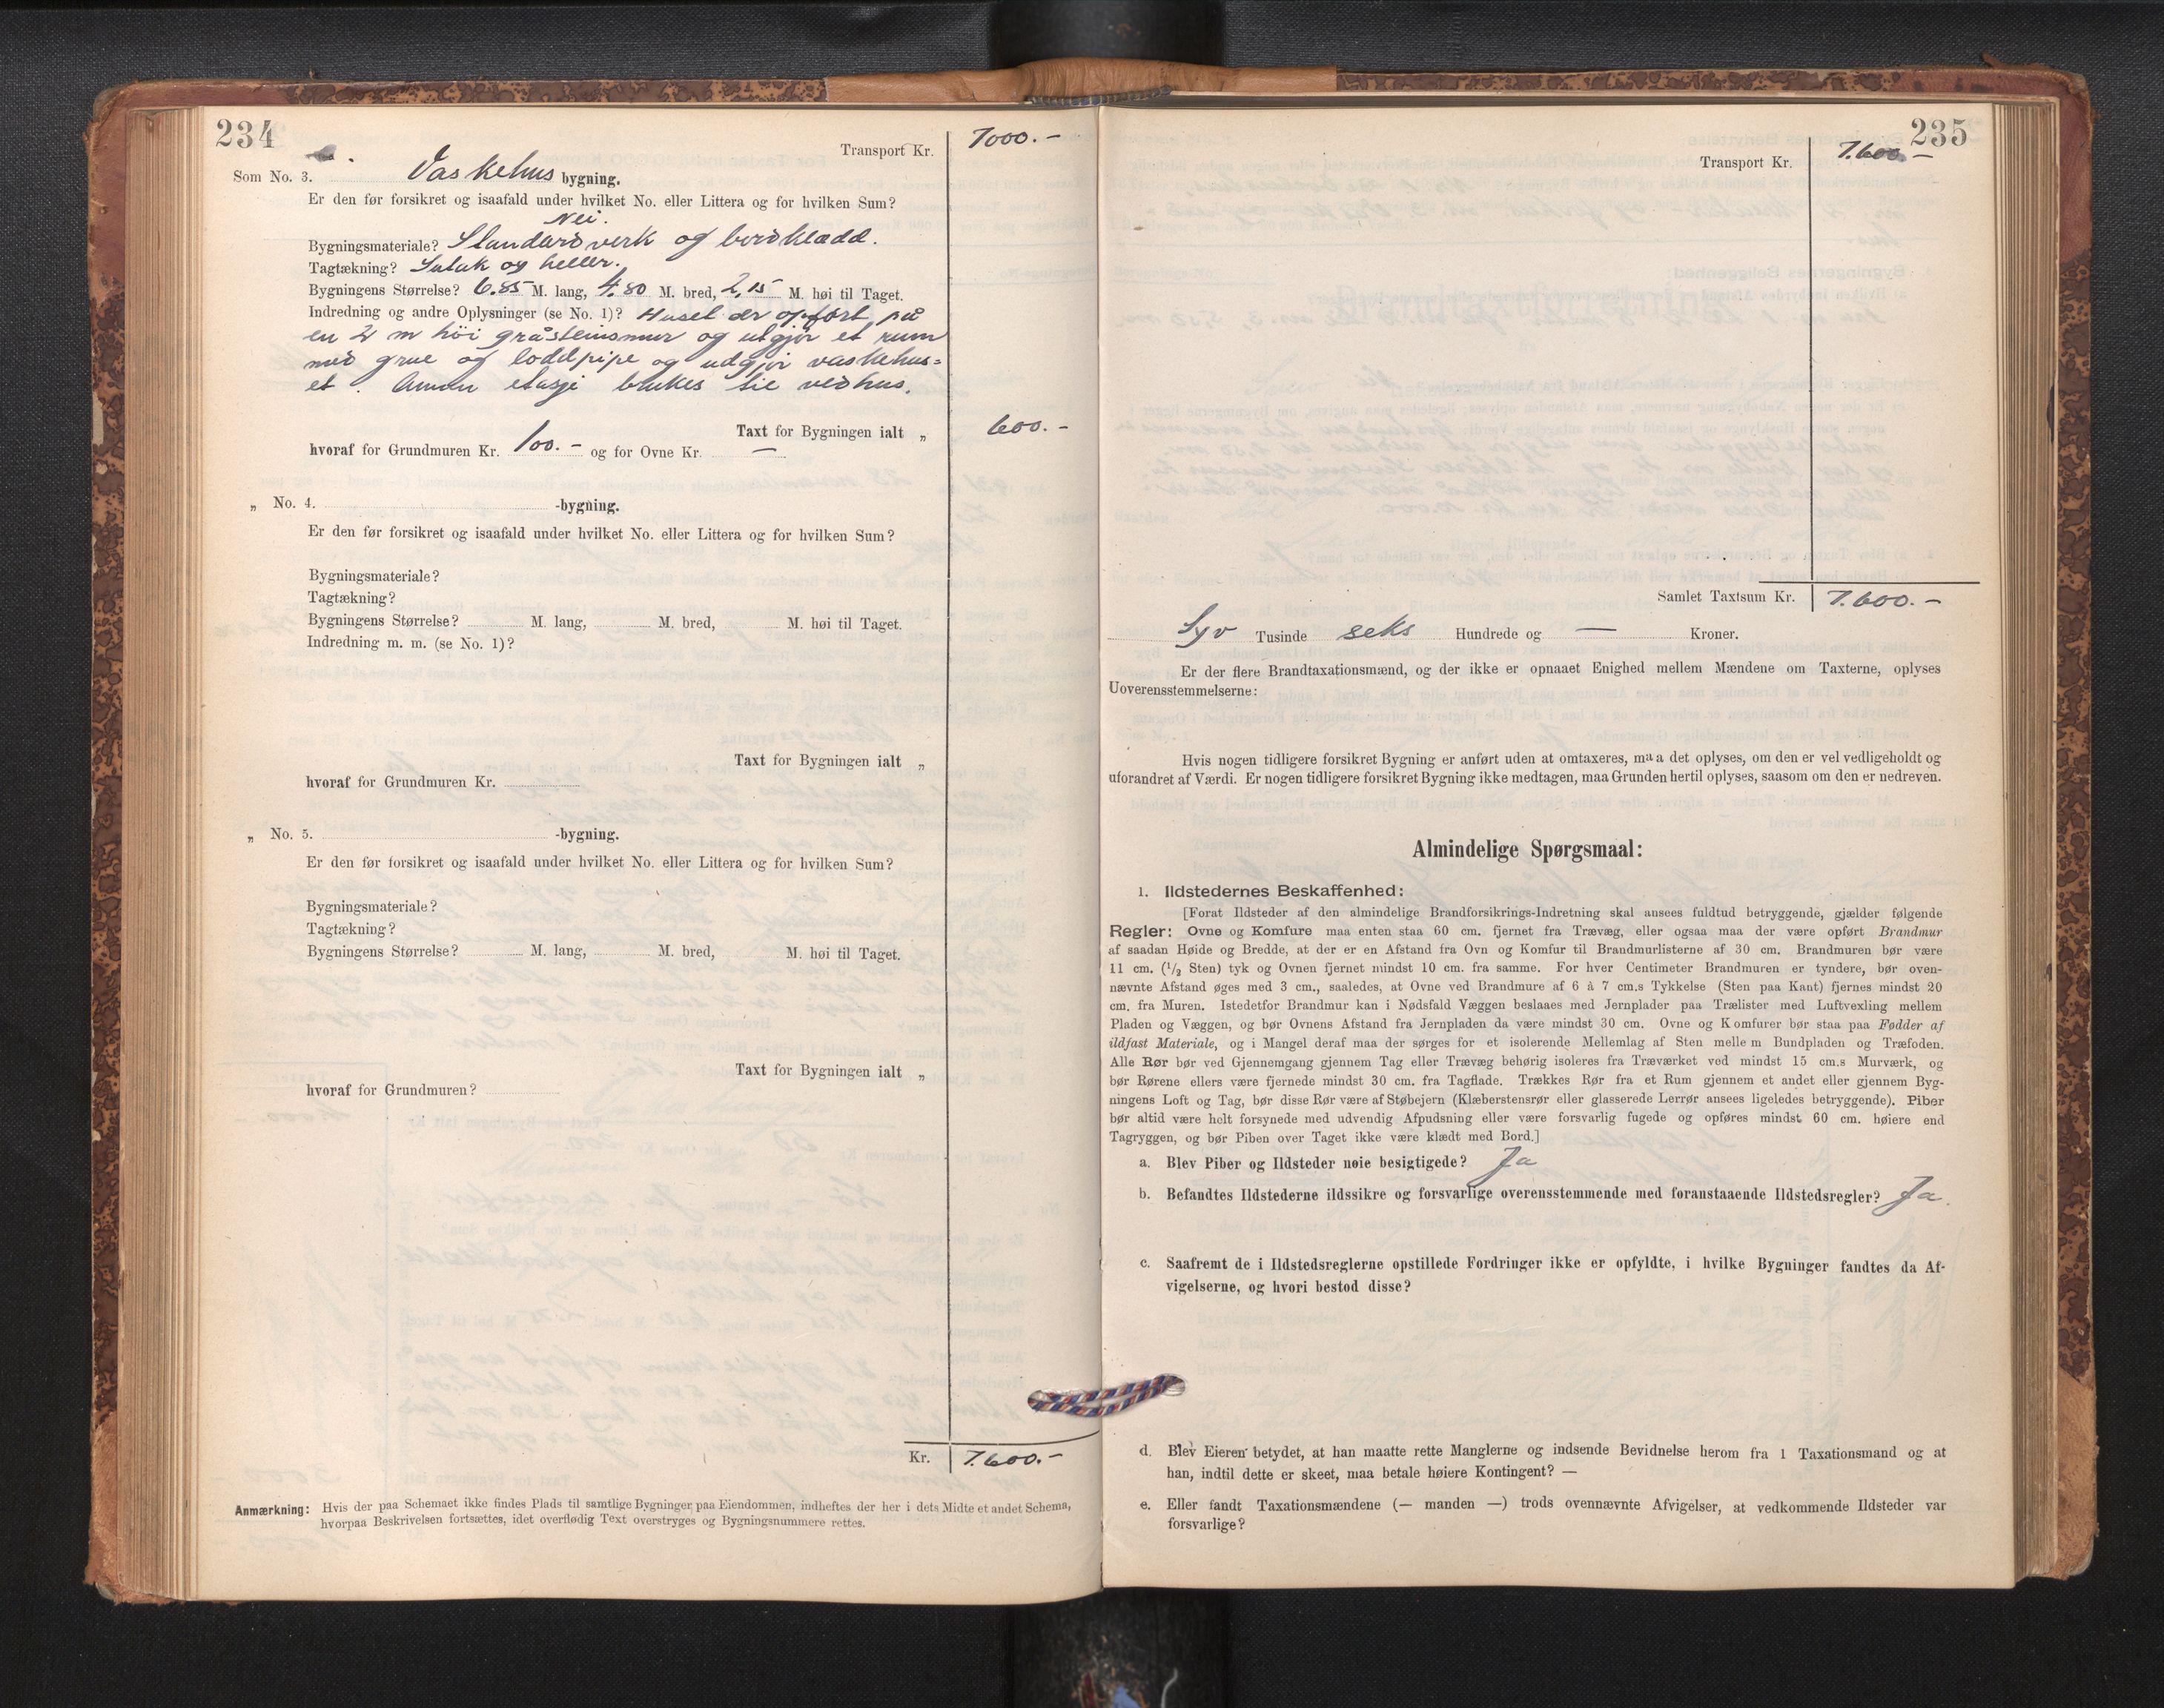 234
Transport Kr. 7000.-
Som No. 3. Vaskehus bygning.
Er den før forsikret og isaafald under hvilket No. eller Littera og for hvilken Sum?
Nei.
Bygningsmateriale? Standardverk og bordklædd.
Tagtækning? Sutak og heller.
Bygningens Størrelse? 6.85 M. lang, 4.80 M. bred, 2,15 M. høi til Taget.
Indredning og andre Oplysninger (se No. 1)? Huset er opført på
en 2 m höi gråsteinsmur og utgjør et rum
med grue og loddpipe og udgjør vaskehus=
et. Annen etasje brukes til vedhus.
Taxt for Bygningen ialt „ 600.-
hvoraf for Grundmuren Kr. 100.- og for Ovne Kr. —
„ No. 4. -bygning.
Er den før forsikret og isaafald under hvilket No. eller Littera og for hvilken Sum?
Bygningsmateriale?
Tagtækning?
Bygningens Størrelse? M. lang, M. bred, M. høi til Taget.
Indredning m. m. (se No. 1)?
Taxt for Bygningen ialt „
hvoraf for Grundmuren Kr.
„ No. 5. -bygning.
Er den før forsikret og isaafald under hvilket No. eller Littera og for hvilken Sum?
Bygningsmateriale?
Tagtækning?
Bygningens Størrelse? M. lang, M. bred, M. høi til Taget.
Taxt for Bygningen ialt „
hvoraf for Grundmuren?
Kr. 7.600.-
Anmærkning: Hvis der paa Schemaet ikke findes Plads til samtlige Bygninger paa Eiendommen, indheftes der her i dets Midte et andet Schema,
hvorpaa Beskrivelsen fortsættes, idet overflødig Text overstryges og Bygningsnummere rettes.
235
Transport Kr. 7.600.-
Samlet Taxtsum Kr. 7.600.-
Syv Tusinde seks Hundrede og — Kroner.
Er der flere Brandtaxationsmænd, og der ikke er opnaaet Enighed mellem Mændene om Taxterne, oplyses
Uoverensstemmelserne:
Hvis nogen tidligere forsikret Bygning er anført uden at omtaxeres, maa det oplyses, om den er vel vedligeholdt og
uforandret af Værdi. Er nogen tidligere forsikret Bygning ikke medtagen, maa Grunden hertil oplyses, saasom om den er nedreven.
Almindelige Spørgsmaal:
1. Ildstedernes Beskaffenhed:
[Forat Ildsteder af den almindelige Brandforsikrings-Indretning skal ansees fuldtud betryggende, gjælder følgende
Regler: Ovne og Komfure maa enten staa 60 cm. fjernet fra Trævæg, eller ogsaa maa der være opført Brandmur
af saadan Høide og Bredde, at der er en Afstand fra Ovn og Komfur til Brandmurlisterne af 30 cm. Brandmuren bør være
11 cm. (1/2 Sten) tyk og Ovnen fjernet mindst 10 cm. fra samme. For hver Centimeter Brandmuren er tyndere, bør oven-
nævnte Afstand øges med 3 cm., saaledes, at Ovne ved Brandmure af 6 à 7 cm.s Tykkelse (Sten paa Kant) fjernes mindst 20
cm. fra Muren. Istedetfor Brandmur kan i Nødsfald Væggen beslaaes med Jernplader paa Trælister med Luftvexling mellem
Pladen og Væggen, og bør Ovnens Afstand fra Jernpladen da være mindst 30 cm. Ovne og Komfurer bør staa paa Fødder af
ildfast Materiale, og i Mangel deraf maa der sørges for et isolerende Mellemlag af Sten mellem Bundpladen og Træfoden.
Alle Rør bør ved Gjennemgang gjennem Tag eller Trævæg behørig isoleres fra Træværket ved mindst 15 cm.s Murværk, og
bør Rørene ellers være fjernede mindst 30 cm. fra Tagflade. Trækkes Rør fra et Rum gjennem et andet eller gjennem Byg-
ningens Loft og Tag, bør disse Rør være af Støbejern (Klæberstensrør eller glasserede Lerrør ansees ligeledes betryggende). Piber
bør altid være helt forsynede med udvendig Afpudsning eller være forsvarlig fugede og opføres mindst 60 cm. høiere end
Tagryggen, og bør Piben over Taget ikke være klædt med Bord.]
a. Blev Piber og Ildsteder nøie besigtigede? Ja
b. Befandtes Ildstederne ildssikre og forsvarlige overensstemmende med foranstaaende Ildstedsregler? Ja.
c. Saafremt de i Ildstedsreglerne opstillede Fordringer ikke er opfyldte, i hvilke Bygninger fandtes da Af-
vigelserne, og hvori bestod disse?
d. Blev Eieren betydet, at han maatte rette Manglerne og indsende Bevidnelse herom fra 1 Taxationsmand og at
han, indtil dette er skeet, maa betale høiere Kontingent? —
e. Eller fandt Taxationsmændene (— manden —) trods ovennævnte Afvigelser, at vedkommende Ildsteder var
forsvarlige?